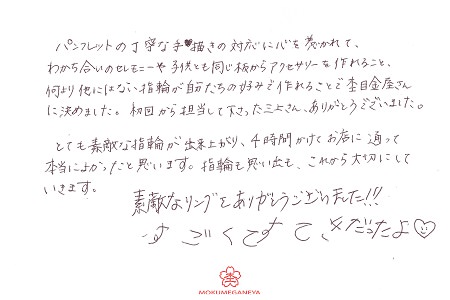 パンフレットの丁寧な手描きの対応に心を惹かれて、
わかち合いのセレモニーや子供とも同じ板からアクセサリーを作れること、
何より他にはない指輪が自分たちの好みで作れることで杢目金屋さん
に決めました。初回から担当して下さった三上さん、ありがとうございました。
とても素敵な指輪が出来上がり、4時間かけてお店に通って
本当によかったと思います。指輪も思い出も、これから大切にして
いきます。
素敵なリングをありがとうございました!!!
すごくすてきだったよ
MOKUMEGANEYA